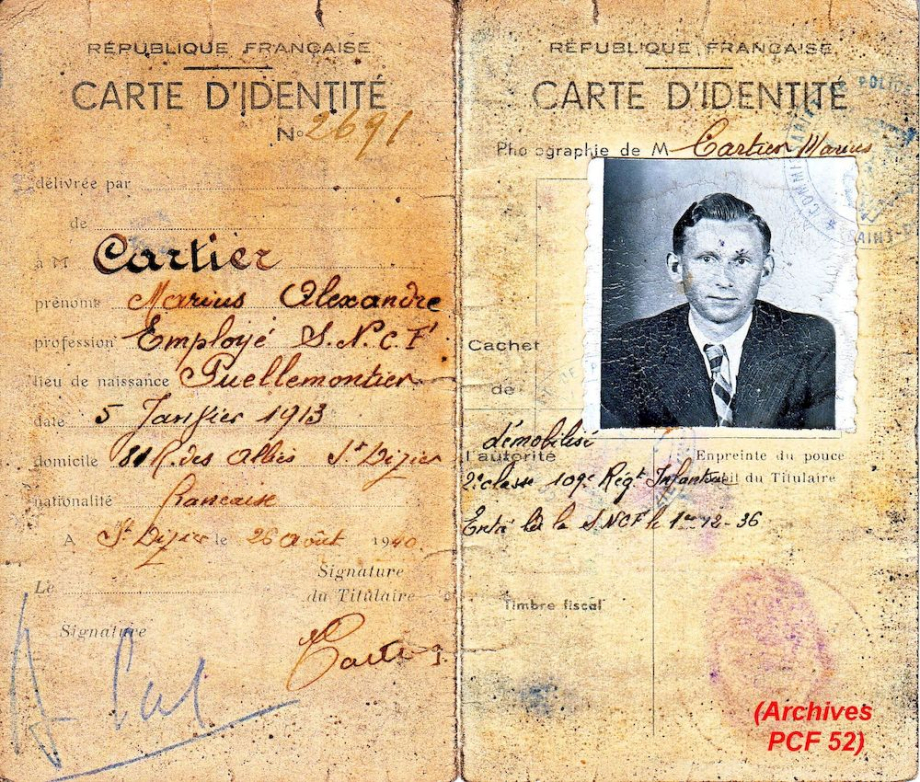 RÉPUBLIQUE FRANÇAISE
CARTE D'IDENTITÉ
No 2691
délivrée par
de
à M Cartier
prénoms Marius Alexandre
profession Employé S.N.C.F
lieu de naissance Puellemontier
date 5 Janvier 1913
domicile 81 R. des Alliés St Dizier
nationalité francaise
A St Dizier le 26 Août 1940
Signature
du Titulaire
Le
Signature
RÉPUBLIQUE FRANÇAISE
CARTE D'IDENTITÉ
Photographie de M Cartier Marius
COMMISSARIAT POLICE
SAINT-D
Cachet
de
démobilisé
l'autorité
Enpreinte du pouce
du Titulaire
2e classe 109e Régt Infanterie
Entré à la SNCF le 1er-12-36
Timbre fiscal
(Archives
PCF 52)